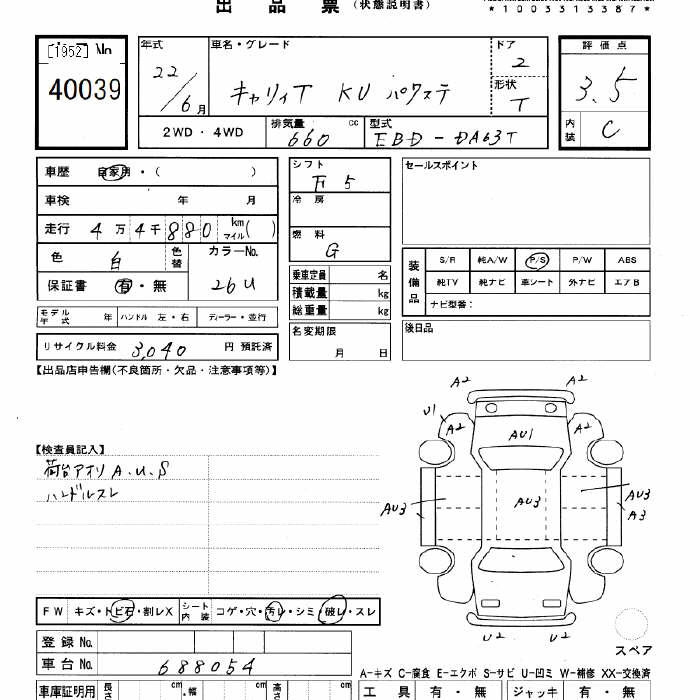 出品票 (状態説明書)
*1003313387*
[1952] No
40039
年式 22/6月
車名・グレード キャリィT KU パワステ
ドア 2
形状 T
評価点 3.5
内装 C
2WD・4WD
排気量 660 cc
型式 EBD-DA63T
車歴 自家用・( )
車検 年 月
走行 4万4千880 km マイル( )
色 白 色替
カラーNo. 26U
保証書 有・無
モデル年式 年 ハンドル 左・右 ディーラー・並行
リサイクル料金 3,040 円 預託済
シフト F5
冷房
燃料 G
乗車定員 名
積載量 kg
総重量 kg
名変期限 月 日
セールスポイント
装備品
S/R 純A/W P/S P/W ABS
純TV 純ナビ 革シート 外ナビ エアB
ナビ型番:
後日品
【出品店申告欄(不良箇所・欠品・注意事項等)】
【検査員記入】
荷台アオリ A.U.S
ハンドルスレ
A2 A2
U1 A2 A2
AU1
AU3 AU3 AU3
A3
U2 U2
スペア
FW キズ・トビ石・割レX シート内装 コゲ・穴・汚レ・シミ・破レ・スレ
登録No.
車台No. 688054
A-キズ C-腐食 E-エクボ S-サビ U-凹ミ W-補修 XX-交換済
車庫証明用 長さ cm ・幅 cm 高さ cm
工具 有・無 ジャッキ 有・無